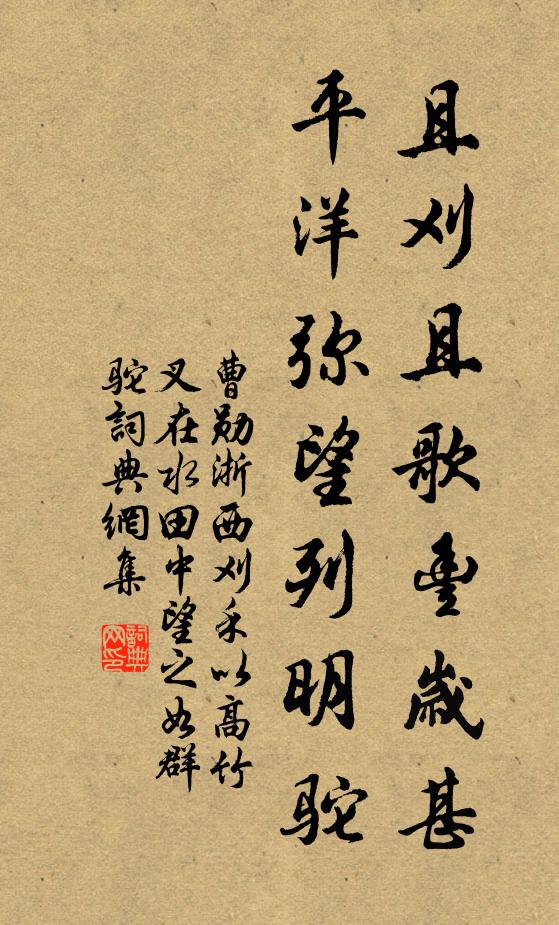 且刈且歌豊歲甚
平洋弥望列明駝
曹勛浙西刈禾以高竹
叉在水田中望之如群
駝詞典網集
詞典
网印